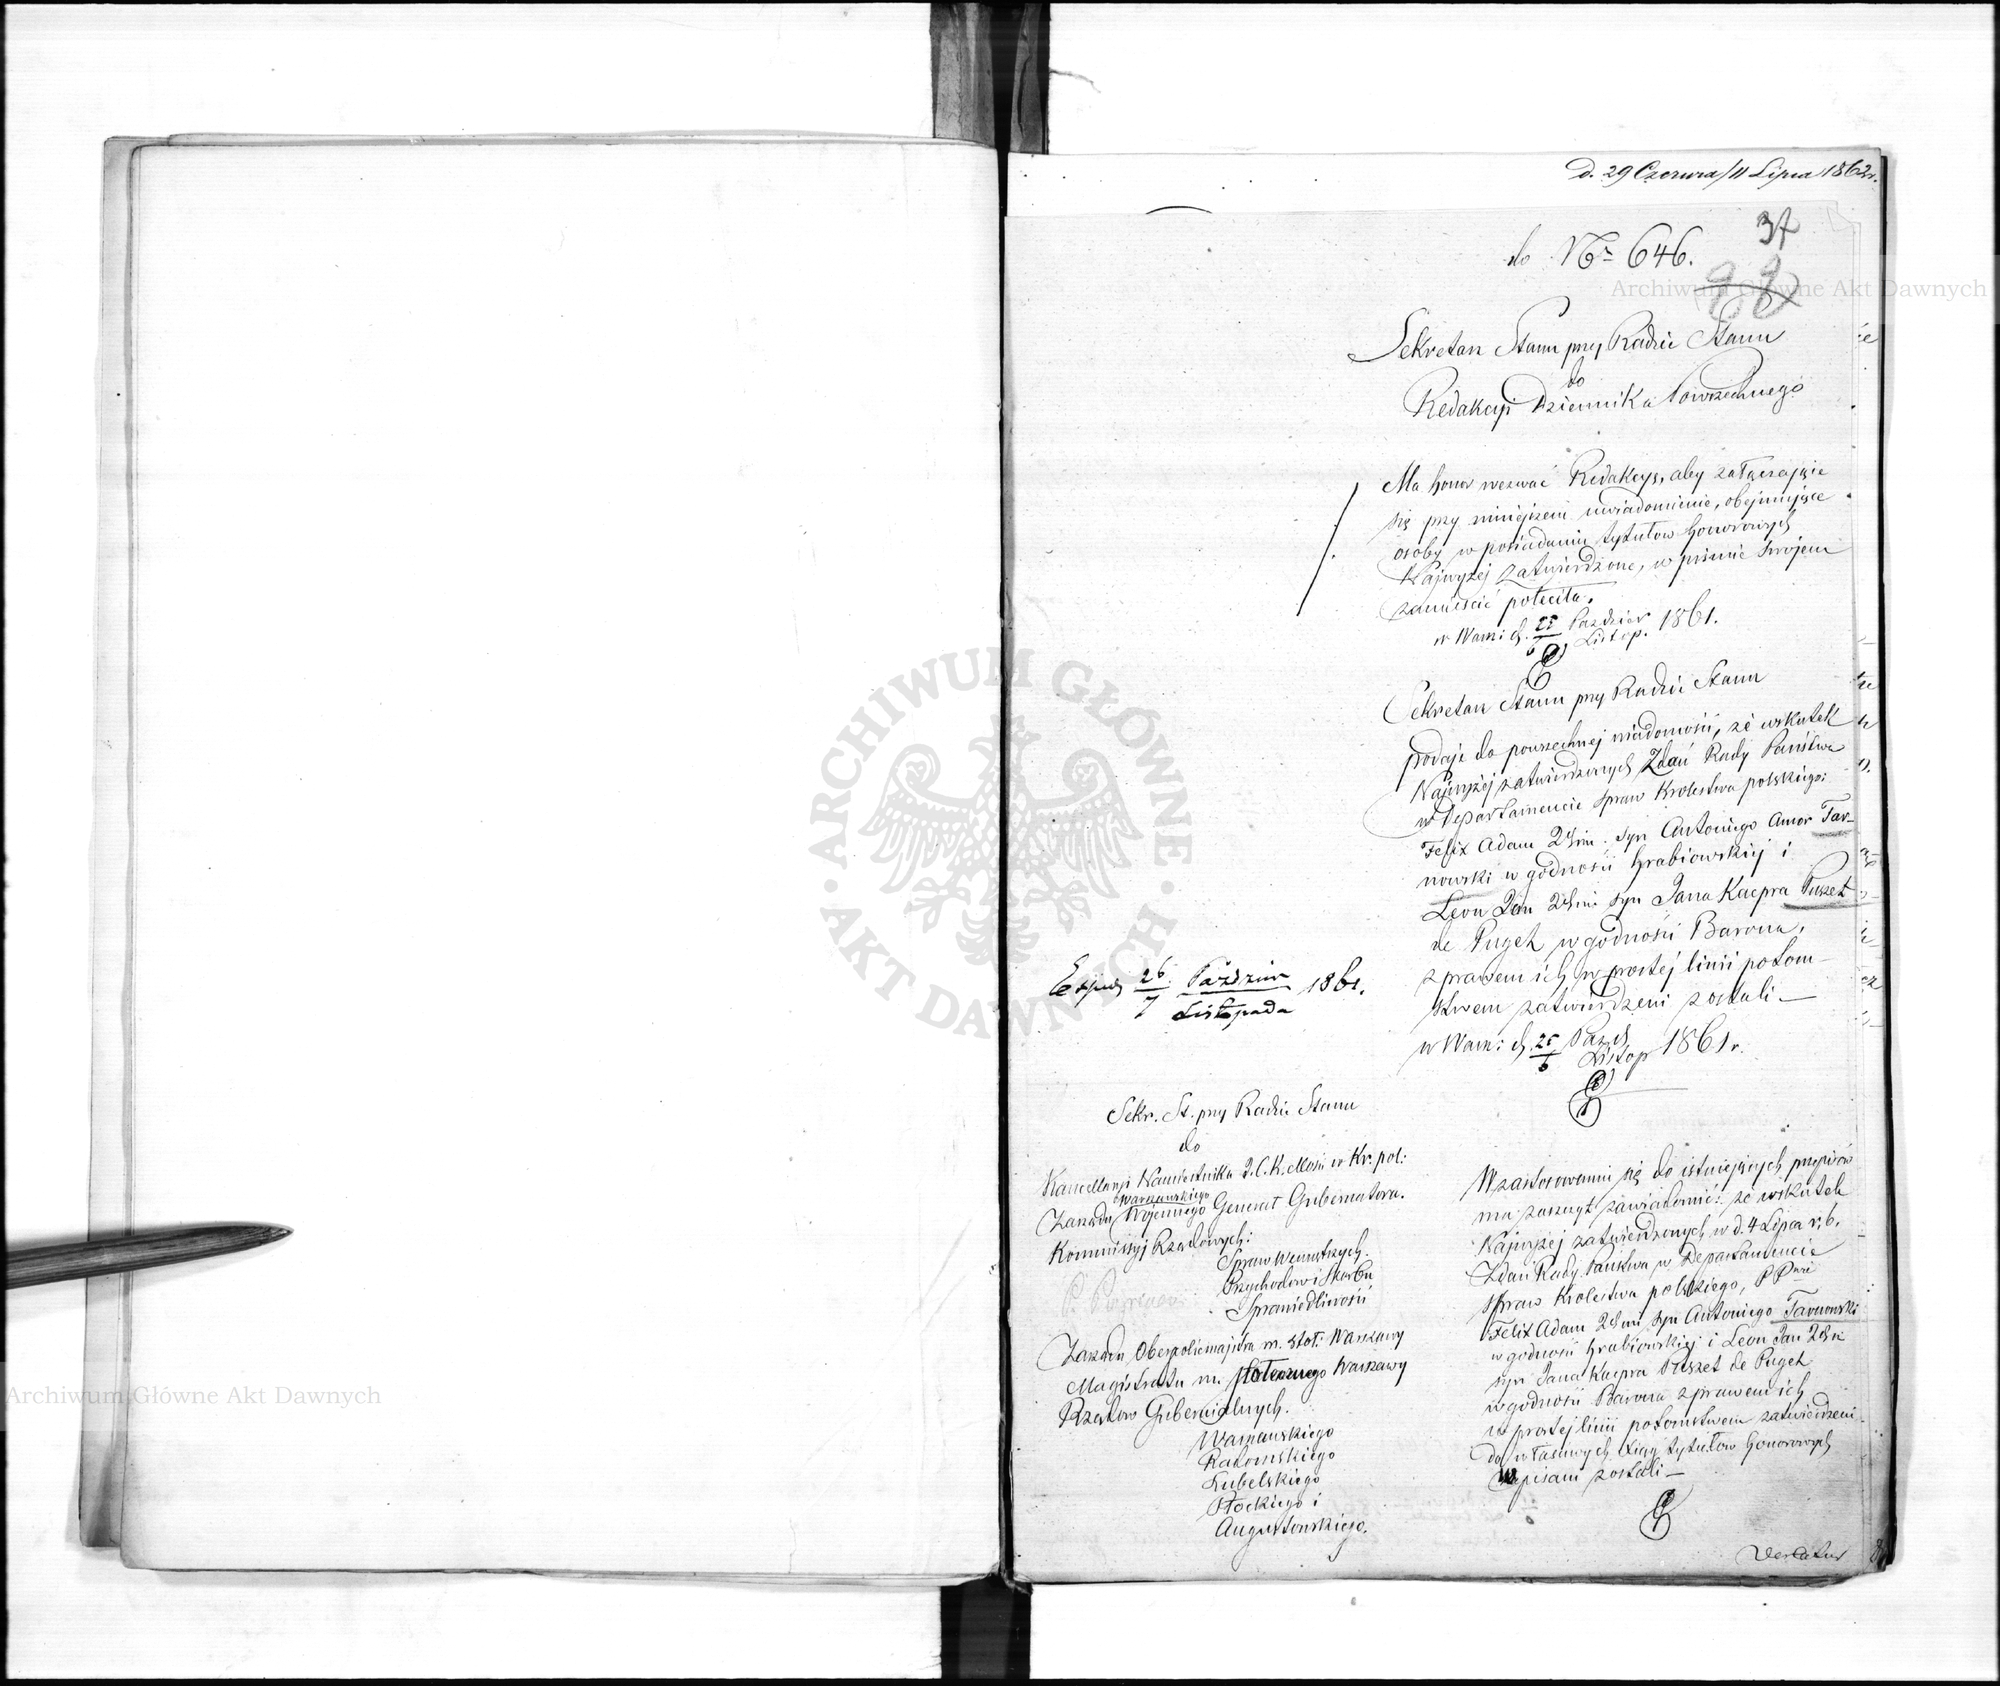 D. 29 Czerwca/11 Lipca 1862 r.
37
do Nr 646.
Sekretarz Stanu przy Radzie Stanu
do
Redakcyi Dziennika Powszechnego
Ma honor wezwać Redakcyą, aby załączające
się przy niniejszem uwiadomienie, obejmujące
osoby w posiadaniu tytułow honorowych
Najwyżej zatwierdzone, w piśmie swojem
zamieścić poleciła.
w Warsz: d. 25/6 Paździer/Listop. 1861.
Sekretarz Stanu przy Radzie Stanu
podaje do powszechnej wiadomości, że wskutek
Najwyżej zatwierdzonych Zdań Rady Państwa
w Departamencie spraw Krolestwa polskiego:
Felix Adam 2ch im: syn Antoniego Amor Tar-
nowski w godności hrabiowskiej i
Leon Jan 2ch im: syn Jana Kacpra Puszet
de Puget w godności Barona,
z prawem ich w prostej linii potom-
stwem zatwierdzeni zostali.—
w Warsz: d. 25/6 Paźd/Listop 1861 r.
Exped 26/7 Paździer/Listopada 1861.
Sekr. St. przy Radzie Stanu
do
Kancellaryi Namiestnika J.C.K. Mości w Kr. pol:
Warszawskiego
Zarządu Wojennego Generał Gubernatora.
Kommissyj Rządowych:
Spraw Wewnętrznych.
Przychodow i Skarbu
Sprawiedliwości
Zarządu Oberpolicmajstra m. stoł: Warszawy
Magistratu m. stołecznego Warszawy
Rządow Gubernialnych.
Warszawskiego
Radomskiego
Lubelskiego
Płockiego i
Augustowskiego.
W zastosowaniu się do istniejących przepisów
ma zaszczyt zawiadomić: że wskutek
Najwyżej zatwierdzonych w d. 4 Lipca r. b.
Zdań Rady Państwa w Departamencie
Spraw Krolestwa polskiego, P
Felix Adam 2ch imi syn Antoniego Tarnowski
w godności hrabiowskiej i Leon Jan 2ch im
syn Jana Kacpra Puszet de Puget
w godności Barona z prawem ich
w prostej linii potomstwem zatwierdzeni
do właściwych Xiąg tytułow honorowych
wpisani zostali—
Vertatur
Archiwum Główne Akt Dawnych
Archiwum Główne Akt Dawnych
ARCHIWUM GŁÓWNE
AKT DAWNYCH